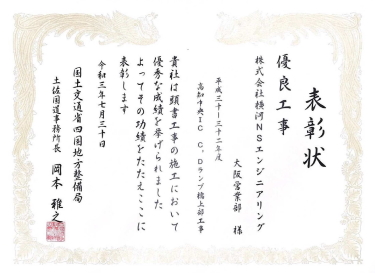 表彰状
優良工事
株式会社横河NSエンジニアリング
大阪営業部 様
平成三十ー三十二年度
高知中央IC C,Dランプ橋上部工事
貴社は頭書工事の施工において
優秀な成績を挙げられました
よってその功績をたたえここに
表彰します
令和三年七月三十日
国土交通省四国地方整備局
土佐国道事務所長 岡本 雅之